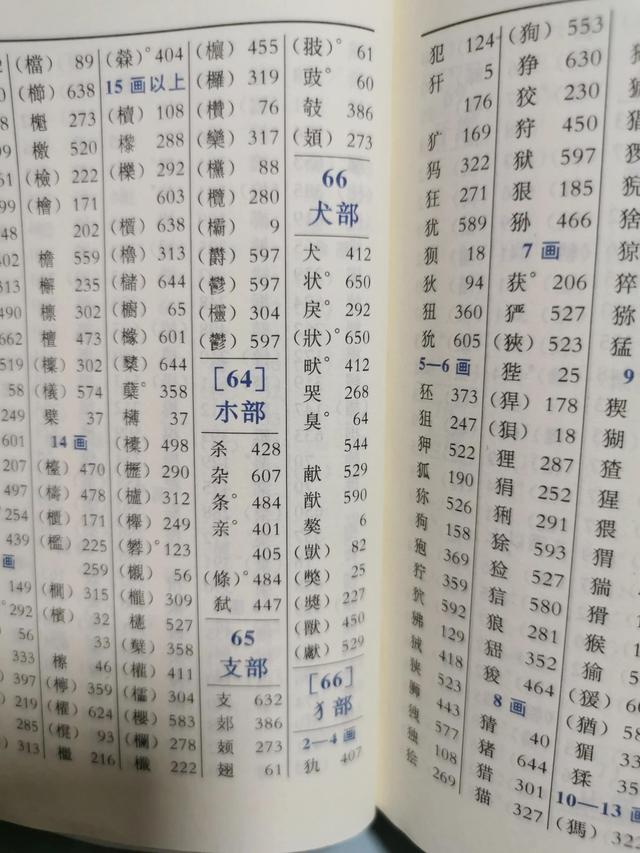 (檔) 89
(櫛) 638
櫆 273
檄 520
(檢) 222
(檜) 171
202
檐 559
檞 235
檩 302
檀 473
(檁) 302
(檥) 574
檗 37
14 画
(檯) 470
(檮) 478
(櫃) 171
(檻) 225
259
(櫚) 315
(檳) 32
33
檫 46
(檸) 359
(櫂) 624
(櫈) 93
櫑 216
(檾)° 404
15 画以上
(櫝) 108
櫐 288
(櫟) 292
603
(櫍) 638
(櫓) 313
(櫧) 644
(櫥) 65
(櫞) 601
(櫫) 644
蘖° 358
欂 37
(櫬) 498
(櫪) 290
(櫨) 312
(櫸) 249
(礬)° 123
(櫬) 56
(櫳) 309
櫶 527
(櫱) 358
(權) 411
(欞) 304
(櫻) 583
(欄) 278
櫼 222
(欀) 455
(欏) 319
(欑) 76
(欒) 317
(欓) 88
(欖) 280
(欛) 9
(欝) 597
(鬱) 597
(欞) 304
(鬱) 597
[64]
朩部
杀 428
杂 607
条° 484
亲° 401
405
(條)° 484
弑 447
65
支部
支 632
郂 386
頍 273
翅 61
(豉)° 61
豉° 60
攲 386
(頍) 273
66
犬部
犬 412
状° 650
戾° 292
(狀)° 650
畎° 412
哭 268
臭° 64
544
献 529
猷 590
獒 6
(獃) 82
(獘) 25
(獎) 227
(獸) 450
(獻) 529
[66]
犭部
2—4 画
犰 407
犯 124
犴 5
176
犷 169
犸 322
狂 271
犹 589
狈 18
狄 94
狃 360
狁 605
5—6 画
狉 373
狙 247
狎 522
狐 190
狝 526
狗 158
狍 369
狞 359
狖 592
狒 129
狨 418
狭 523
狮 443
狪 577
独 108
狯 269
(狥) 553
狰 630
狡 230
狩 450
狱 597
狠 185
狲 466
7 画
获° 206
狝 527
(狹) 523
狴 25
(猂) 178
(狽) 18
狸 287
狷 252
猁 291
狳 593
猃 527
狺 580
狼 281
峱 352
狻 464
8 画
猜 40
猪 644
猎 301
猫 327
猄
猝
猕
猛
9
猰
猢
猹
猩
猥
猬
猯
猾
猴
猶
(猨)
(猶) 58
猸
猱
10—13 画
(獁) 322